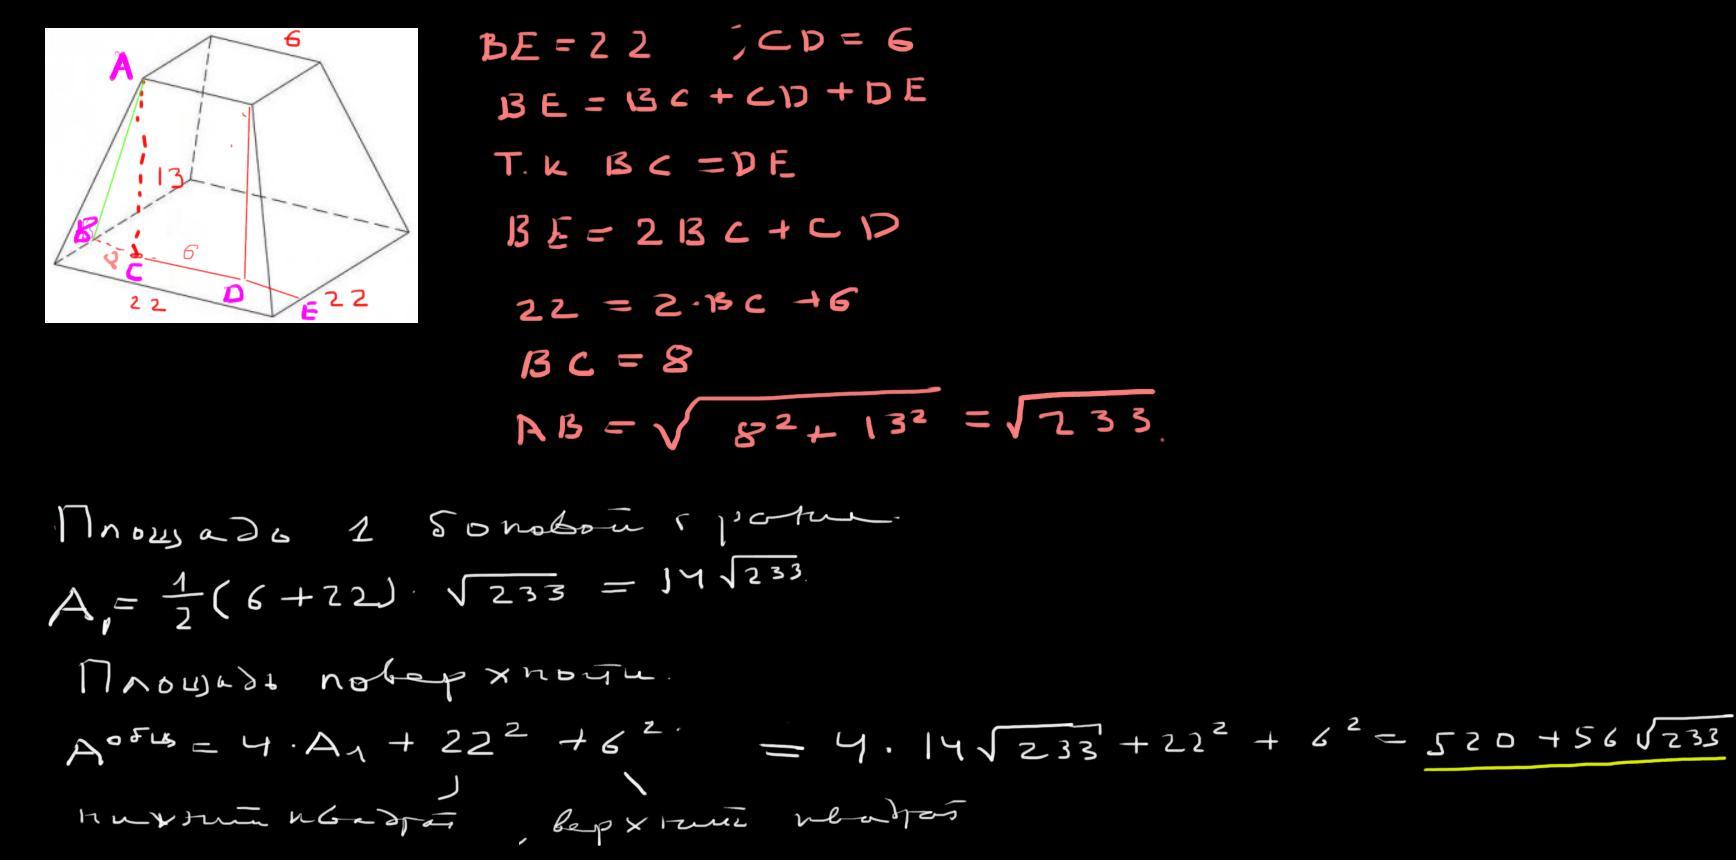 6
A
13
B
8 C 6
D
22
E 22
BE = 22 ; CD = 6
BE = BC + CD + DE
Т.к BC = DE
BE = 2BC + CD
22 = 2·BC + 6
BC = 8
AB = √(8² + 13²) = √233.
Площадь 1 боковой грани
A₁ = 1/2 (6 + 22) · √233 = 14√233
Площадь поверхности.
Aобщ = 4·A₁ + 22² + 6² = 4·14√233 + 22² + 6² = 520 + 56√233
нижний квадрат, верхний квадрат